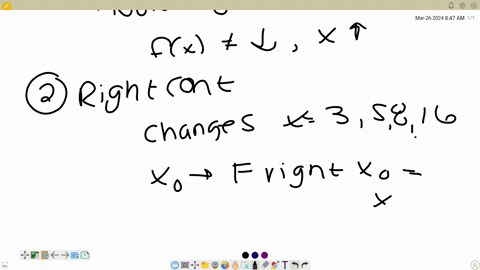 Mar-26-2024 8:47 AM 1/1
f(x) ≠ ↓, x ↑
② Right cont
changes x= 3, 5, 8, 16
x₀ → F right x₀ =
x